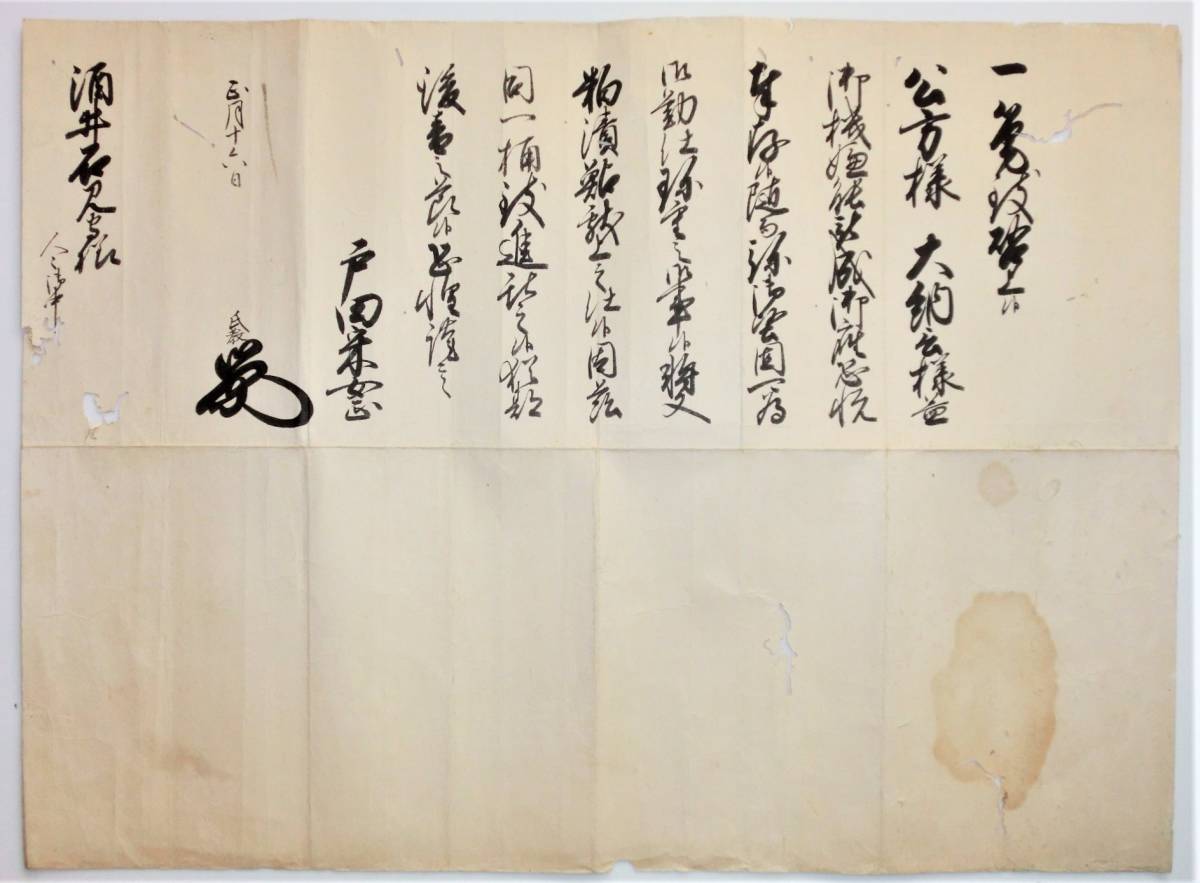 一筆致啓上候
公方様 大納言様益
御機嫌能被成御座恐悦
奉存候随而弥御堅固可為
御勤仕珍重之御事候将又
粕漬鮎献上之仕候因茲
同一桶致進献之候猶期
後音之節候恐惶謹言
戸田采女正
正月十六日 氏
酒井石見守様
人々御中